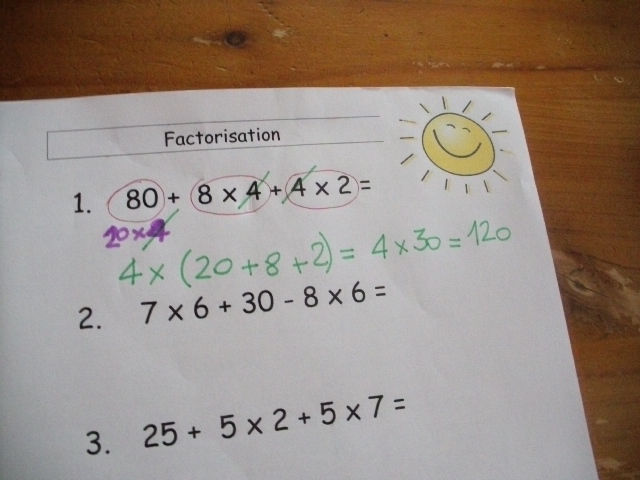 Factorisation
1. 80 + 8 x 4 + 4 x 2 =
20 x 4
4 x (20 + 8 + 2) = 4 x 30 = 120
2. 7 x 6 + 30 - 8 x 6 =
3. 25 + 5 x 2 + 5 x 7 =